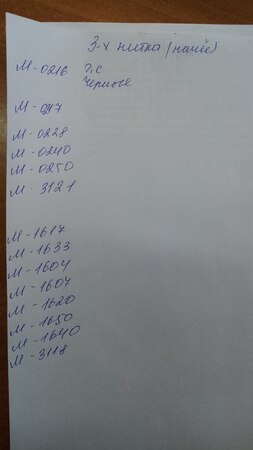 3-х нитка (начёс)
М-0216 т.с
черное
М-0217
М-0228
М-0240
М-0250
М-3121
М-1617
М-1633
М-1604
М-1607
М-1620
М-1650
М-1640
М-3118